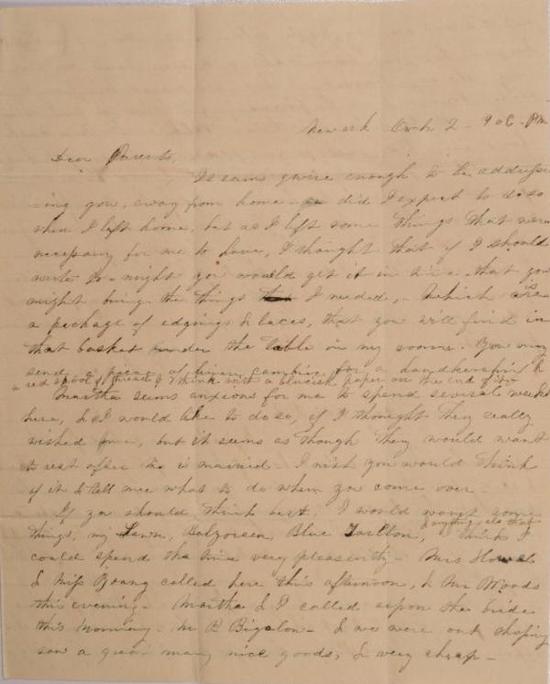 Newark Octr 2 - 9 o C - PM
Dear Parents,
It seams quire enough to be address
ing you, away from home - did I expect to do so
when I left home, but as I left some things that were
necessary for me to have, I thought that if I should
write to-night you would get it in time that you
might bring the things I needed, - Which are
a package of edgings & laces, that you will find in
that basket under the table in my room. You may
send a piece of linen cambric for a handkerchief &
a red spool of thread I think with a blueish paper on the end of it
Martha seems anxious for me to spend several weeks
here, & I would like to do so, if I thought they really
wished me, but it seems as though they would want
to rest after she is married. I wish you would think
of it & tell me what to do when you come over -
If you should think best, I would want some
things, my Lawn, Balzorean, Blue Tarlton, & anything else that
I think I
could spend the time very pleasently - Mrs Howel
& Miss Young called here this afternoon, & Mr Woods
this evening - Martha & I called upon the bride
this morning - M B Bigelow - & we were out shoping
saw a great many nice goods, & very cheap -